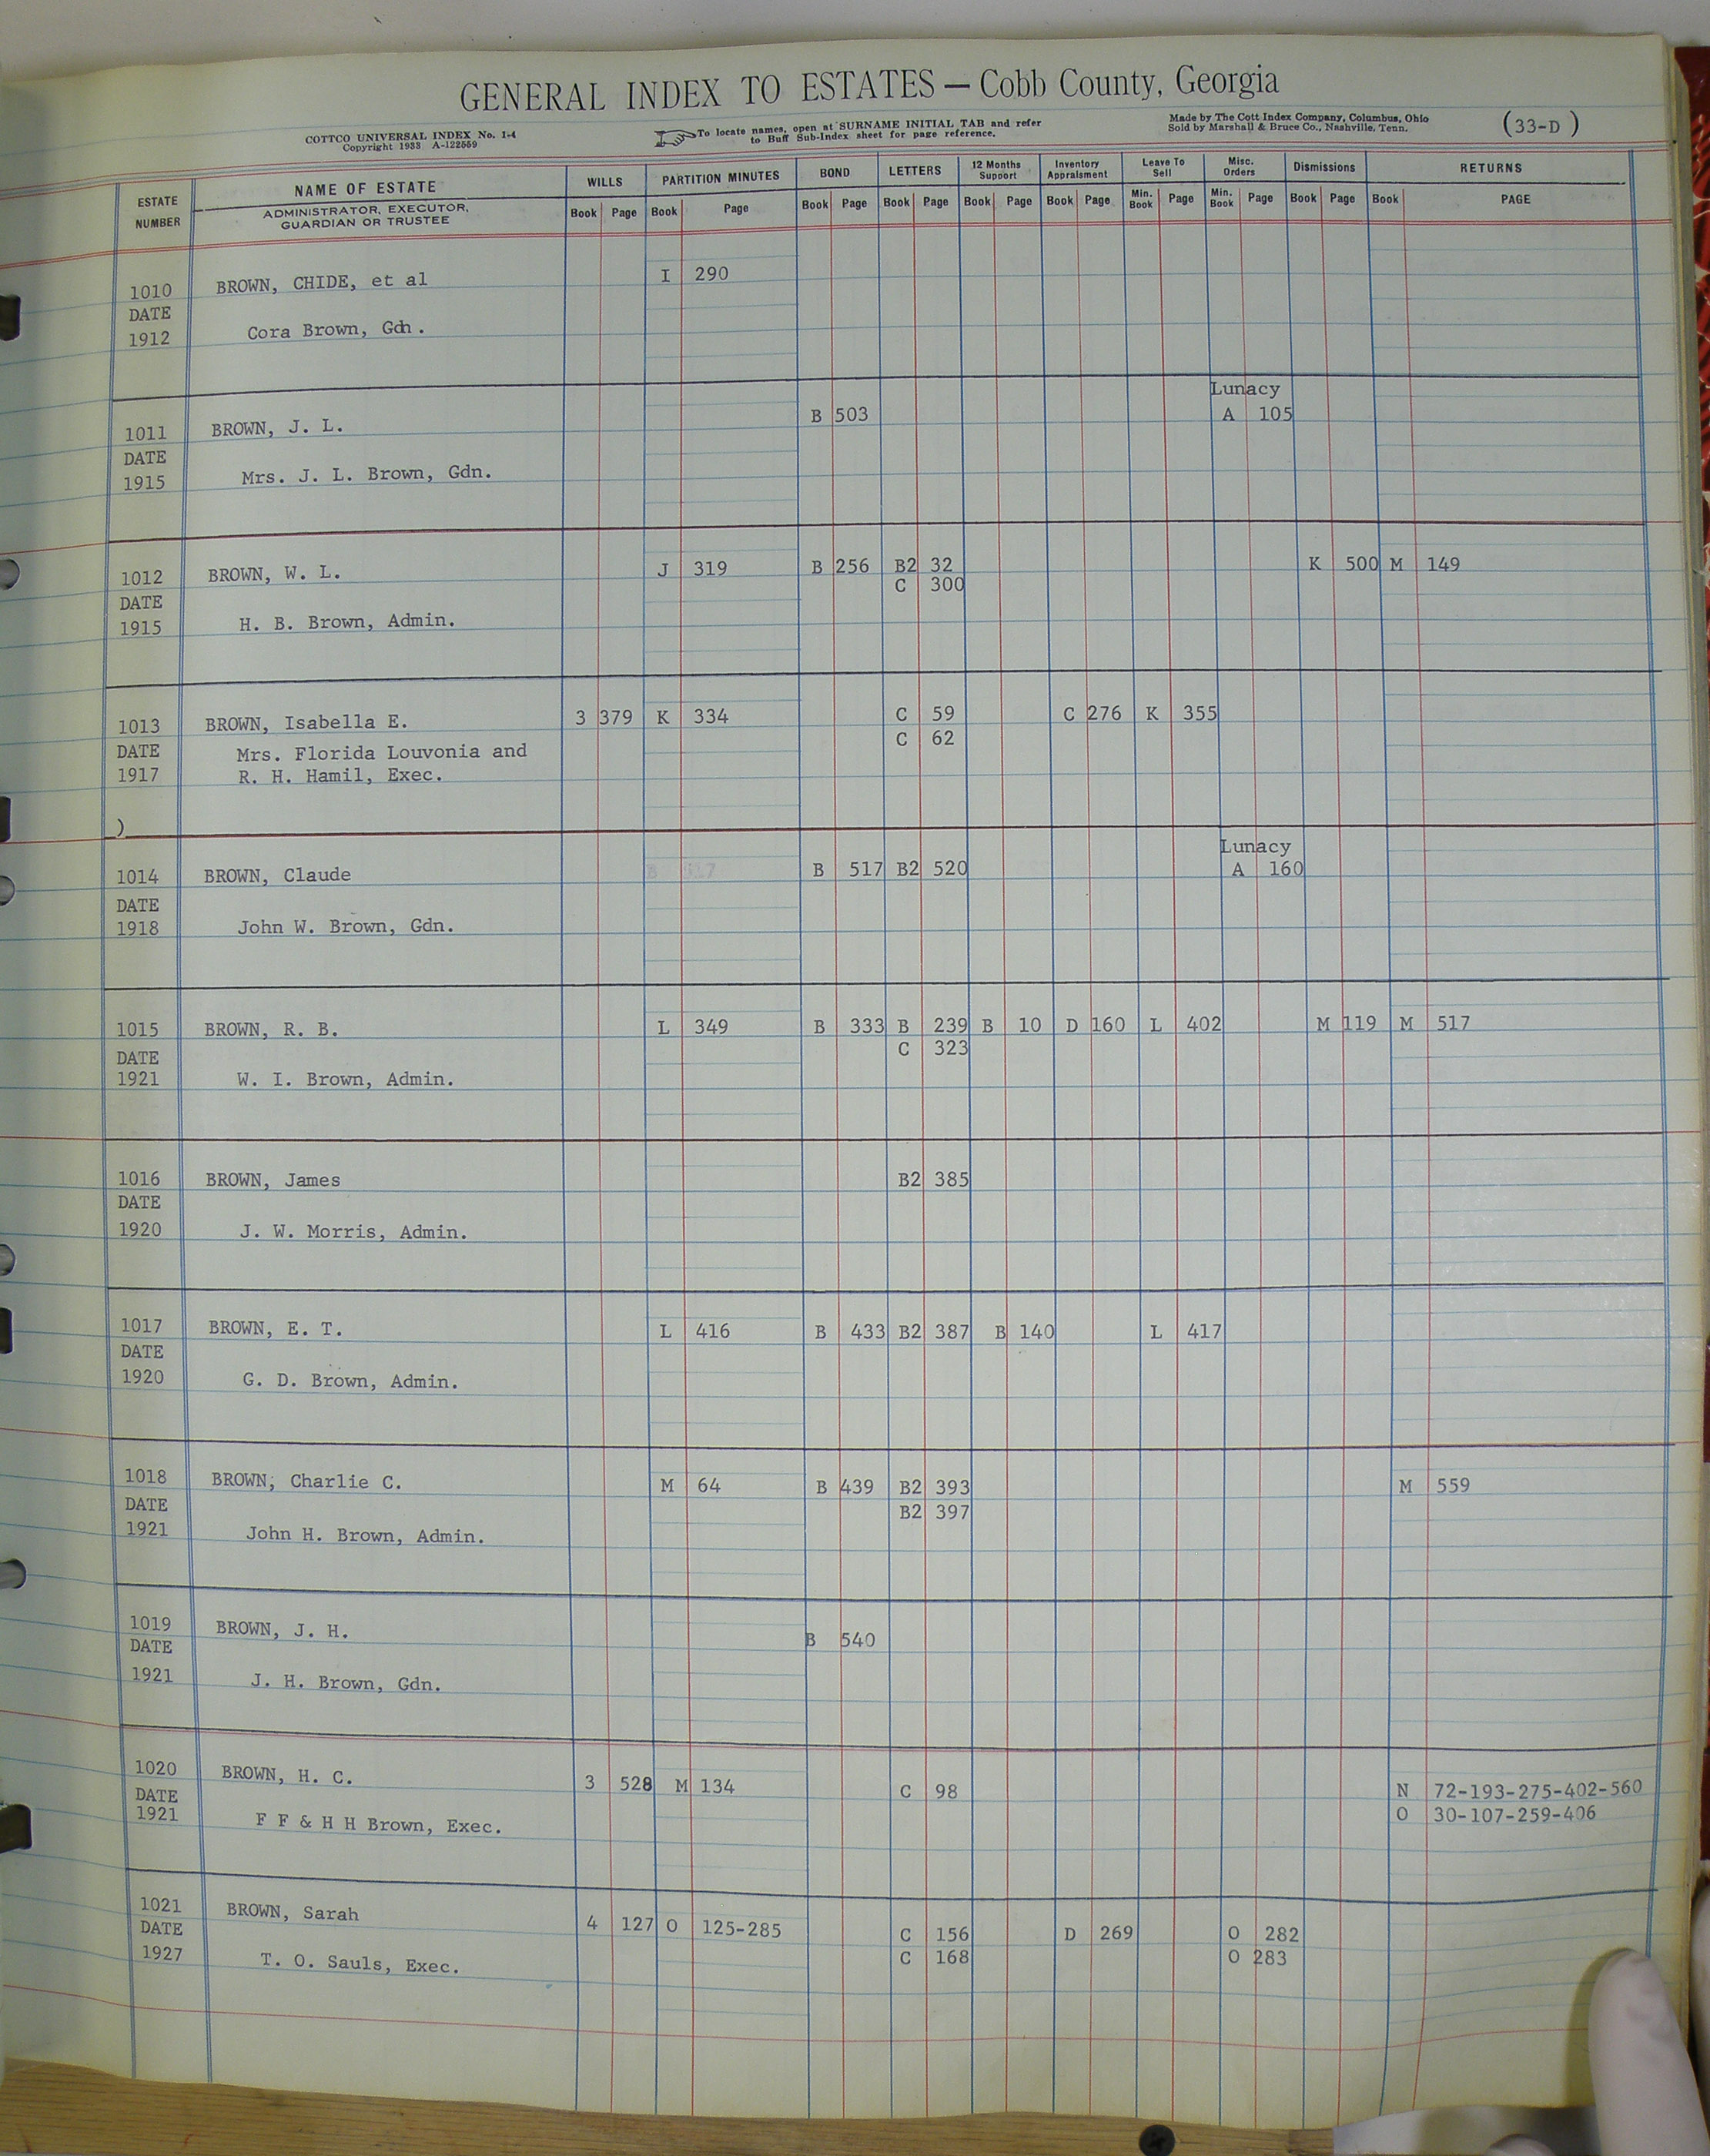 GENERAL INDEX TO ESTATES — Cobb County, Georgia
COTTCO UNIVERSAL INDEX No. 1-4
Copyright 1933 A-122559
To locate names, open at SURNAME INITIAL TAB and refer
to Buff Sub-Index sheet for page reference.
Made by The Cott Index Company, Columbus, Ohio
Sold by Marshall & Bruce Co., Nashville, Tenn.
(33-D)
ESTATE NUMBER NAME OF ESTATE WILLS PARTITION MINUTES BOND LETTERS 12 Months Support Inventory Appraisment Leave To Sell Misc. Orders Dismissions RETURNS
ADMINISTRATOR, EXECUTOR, GUARDIAN OR TRUSTEE Book Page Book Page Book Page Book Page Book Page Book Page Min. Book Page Min. Book Page Book Page Book PAGE
1010 BROWN, CHIDE, et al I 290
DATE
1912 Cora Brown, Gdn.
Lunacy
1011 BROWN, J. L. B 503 A 105
DATE
1915 Mrs. J. L. Brown, Gdn.
1012 BROWN, W. L. J 319 B 256 B2 32 K 500 M 149
C 300
DATE
1915 H. B. Brown, Admin.
1013 BROWN, Isabella E. 3 379 K 334 C 59 C 276 K 355
C 62
DATE Mrs. Florida Louvonia and
1917 R. H. Hamil, Exec.
)
Lunacy
1014 BROWN, Claude B 517 B2 520 A 160
DATE
1918 John W. Brown, Gdn.
1015 BROWN, R. B. L 349 B 333 B 239 B 10 D 160 L 402 M 119 M 517
C 323
DATE
1921 W. I. Brown, Admin.
1016 BROWN, James B2 385
DATE
1920 J. W. Morris, Admin.
1017 BROWN, E. T. L 416 B 433 B2 387 B 140 L 417
DATE
1920 G. D. Brown, Admin.
1018 BROWN, Charlie C. M 64 B 439 B2 393 M 559
DATE B2 397
1921 John H. Brown, Admin.
1019 BROWN, J. H. B 540
DATE
1921 J. H. Brown, Gdn.
1020 BROWN, H. C. 3 528 M 134 C 98 N 72-193-275-402-560
DATE O 30-107-259-406
1921 F F & H H Brown, Exec.
1021 BROWN, Sarah 4 127 O 125-285 C 156 D 269 O 282
DATE C 168 O 283
1927 T. O. Sauls, Exec.